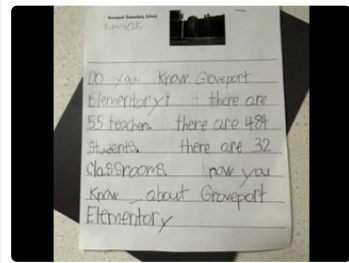 Groveport Elementary School
Do you know Groveport
Elementary? there are
55 teachers. there are 484
Students. there are 32
Classrooms. now you
Know about Groveport
Elementary